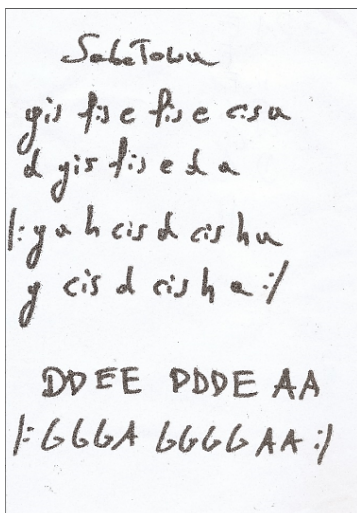 SabaTowu
gis fis e fis e cis a
d gis fis e d a
|: g a h cis d cis h a
g cis d cis h a :|
DDEE DDDE AA
|: GGGA GGGG AA :|